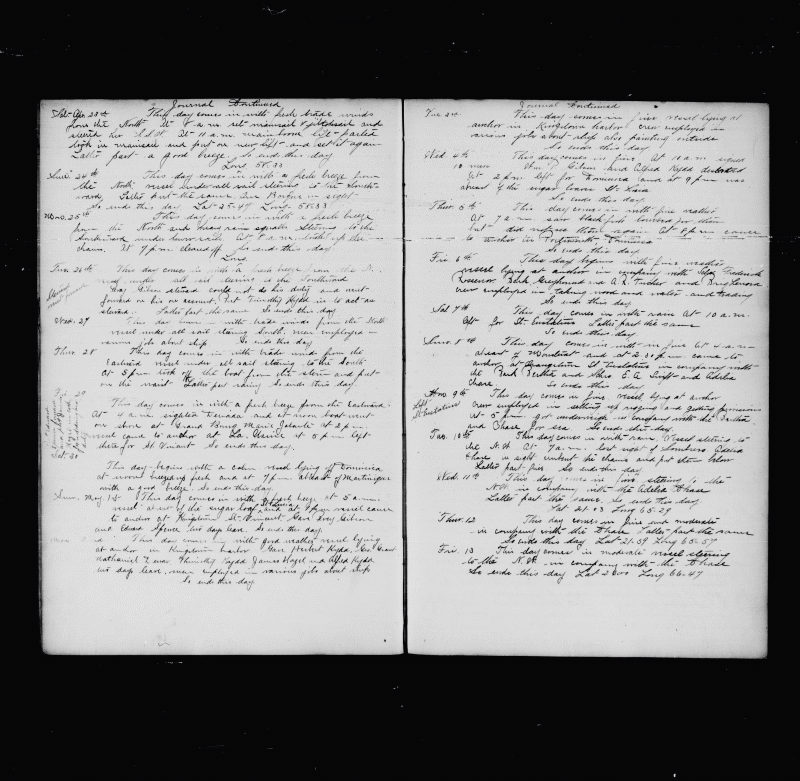 Journal Continued
Sat Apr 23rd This day comes in with fresh trade winds
from the North At 8 a.m. set mainsail &
steered her At 11 a.m. main boom lift parted
took in mainsail and put on new lift and set it again
Latter part a good breeze. So ends this day
Long 58.33
Sun. 24th This day comes in with a fresh breeze from
the North vessel under all sail steering to the South
ward, Latter part the same One in sight
So ends this day Lat 25.47 Long 58.33
Mon. 25th This day comes in with a fresh breeze
from the North and heavy rain squalls Steering to the
Southward under lower sails At 8 a.m. the
chains. At 7 p.m. So ends this day
Long
Tues. 26th This day comes in with a fresh breeze from the
vessel under all sail steering to the Southward
Gibson steward could not do his duty and went
forward on his own account, but Timothy Kydd is to act as
steward. Latter part the same So ends this day
Wed. 27 This day comes in with trade winds from the North
vessel under all sail steering South, men employed in
various jobs about ship So ends this day
Thur 28 This day comes in with trade winds from the
Eastward vessel under all sail steering to the South
at 5 p.m. took off the boat from the stern and put
on the waist Latter part rainy So ends this day
29 This day comes in with a fresh breeze from the Eastward
At 4 a.m. sighted and at noon boat went
on shore at Grand Bourg Marie Galante at 2 p.m.
vessel came to anchor at at 5 p.m. left
there for St Vincent So ends this day.
Sat. 30
This day begins with a calm vessel lying off Dominica
at noon breezing fresh and at 7 p.m. abreast of Martinique
with a good breeze. So ends this day.
Sun. May 1st This day comes in with a fresh breeze at 5 a.m.
vessel abreast of the sugar loaf St Lucia and at 9 p.m. vessel came
to anchor at Kingstown St. Vincent Gave Gibson
and Edward Spence two days leave. So ends this day
This day comes in with good weather vessel lying
at anchor in Kingstown harbor Gave Herbert Kydd, Geo. Grant
Nathaniel Timothy Kydd James Hazel and Alfred Kydd
two days leave, men employed in various jobs about ship
So ends this day
Journal Continued
Tue 3rd This day comes in fine vessel lying at
anchor in Kingstown harbor crew employed in
various jobs about ship also painting outside
So ends this day
Wed 4th This day comes in fine At 10 a.m. signed
10 men Wm J Gibson and Alfred Kydd deserted
at 2 p.m. left for Dominica and at 9 p.m. was
abreast of the sugar loaves St Lucia
So ends this day
Thur 5th This day comes in with fine weather
At 7 a.m. saw blackfish lowered for them
but did not see them again At 8 p.m. came
to anchor in Portsmouth Dominica
So ends this day
Fri 6th This day begins with fine weather
vessel lying at anchor in company with Schr Frederick
Roesner Bark Greyhound and A.R. Tucker and Brig Leonora
crew employed in taking wood and water and trading
So ends this day
Sat 7th This day comes in with rain At 10 a.m.
left for St. Eustatius Latter part the same
So ends this day
Sun 8th This day comes in with rain At 4 a.m.
abreast of Montserrat and at 2.30 p.m. came to
anchor at Orangetown St Eustatius in company with
the Bark Bertha and Schrs. E.A. Swift and Adelia
Chase So ends this day
Mon. 9th This day comes in fine vessel lying at anchor
Left
St Eustatius
crew employed in setting up rigging and getting provisions
at 5 p.m. got underweigh in company with the Bertha
and Chase for sea So ends this day
Tue. 10th This day comes in with rain, Vessel steering to
the N.W. At 7 a.m. lost sight of Sombrero Adelia
Chase in sight unbent the chains and put them below
Latter part fine So ends this day
Wed. 11th This day comes in fine steering to the
N.W. in company with the Adelia Chase
Latter part the same, So ends this day
Long 65.29
Thur. 12 This day comes in fine and moderate
in company with the Chase Latter part the same
So ends this day Lat 21.39 Long 65.57
Fri. 13 This day comes in moderate vessel steering
to the N.W. in company with the Chase
So ends this day Long 66.47